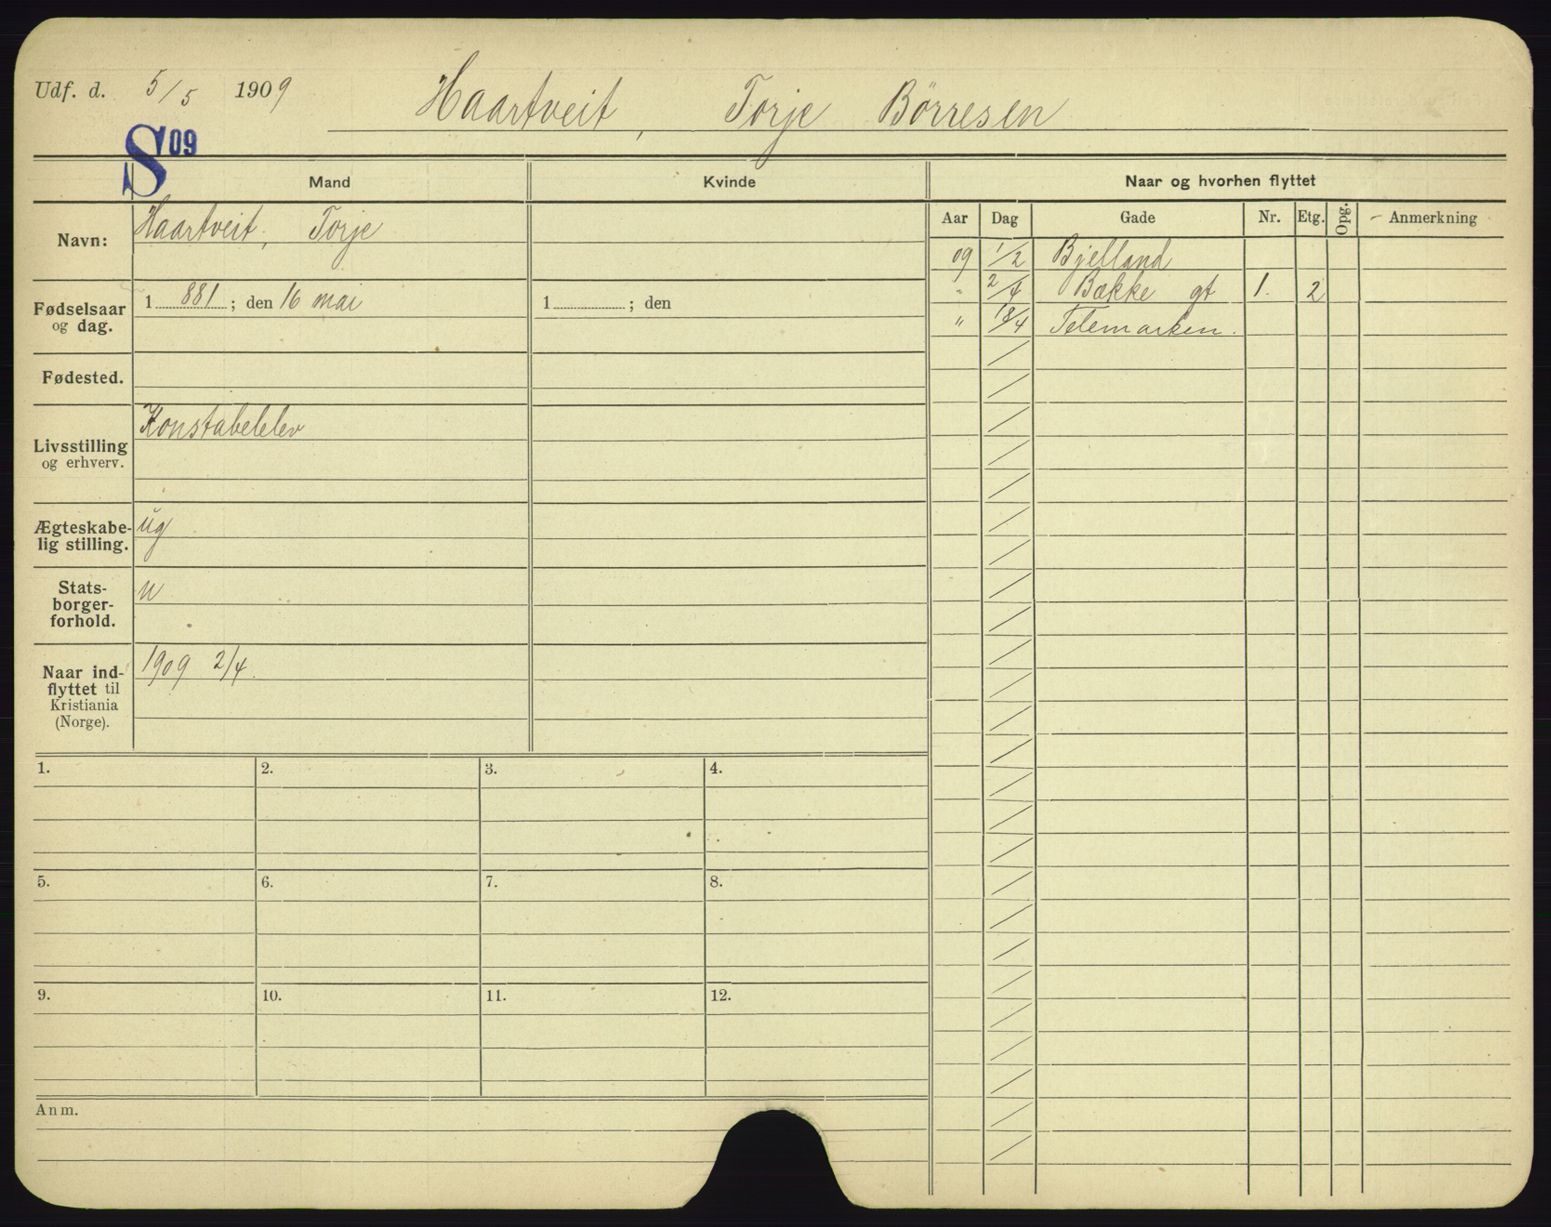 Udf. d. 5/5 1909 Haartveit, Torje Børresen
S 09
Mand Kvinde Naar og hvorhen flyttet
Aar Dag Gade Nr. Etg. Opg. Anmerkning
Navn: Haartveit, Torje
Fødselsaar og dag. 1 881; den 16 mai 1 ; den
Fødested.
Livsstilling og erhverv. Konstabelelev
Ægteskabelig stilling. ug
Statsborgerforhold. n
Naar indflyttet til Kristiania (Norge). 1909 2/4.
09 1/2 Bjelland
" 2/4 Bække gt 1. 2
" 18/4 Telemarken.
1. 2. 3. 4.
5. 6. 7. 8.
9. 10. 11. 12.
Anm.